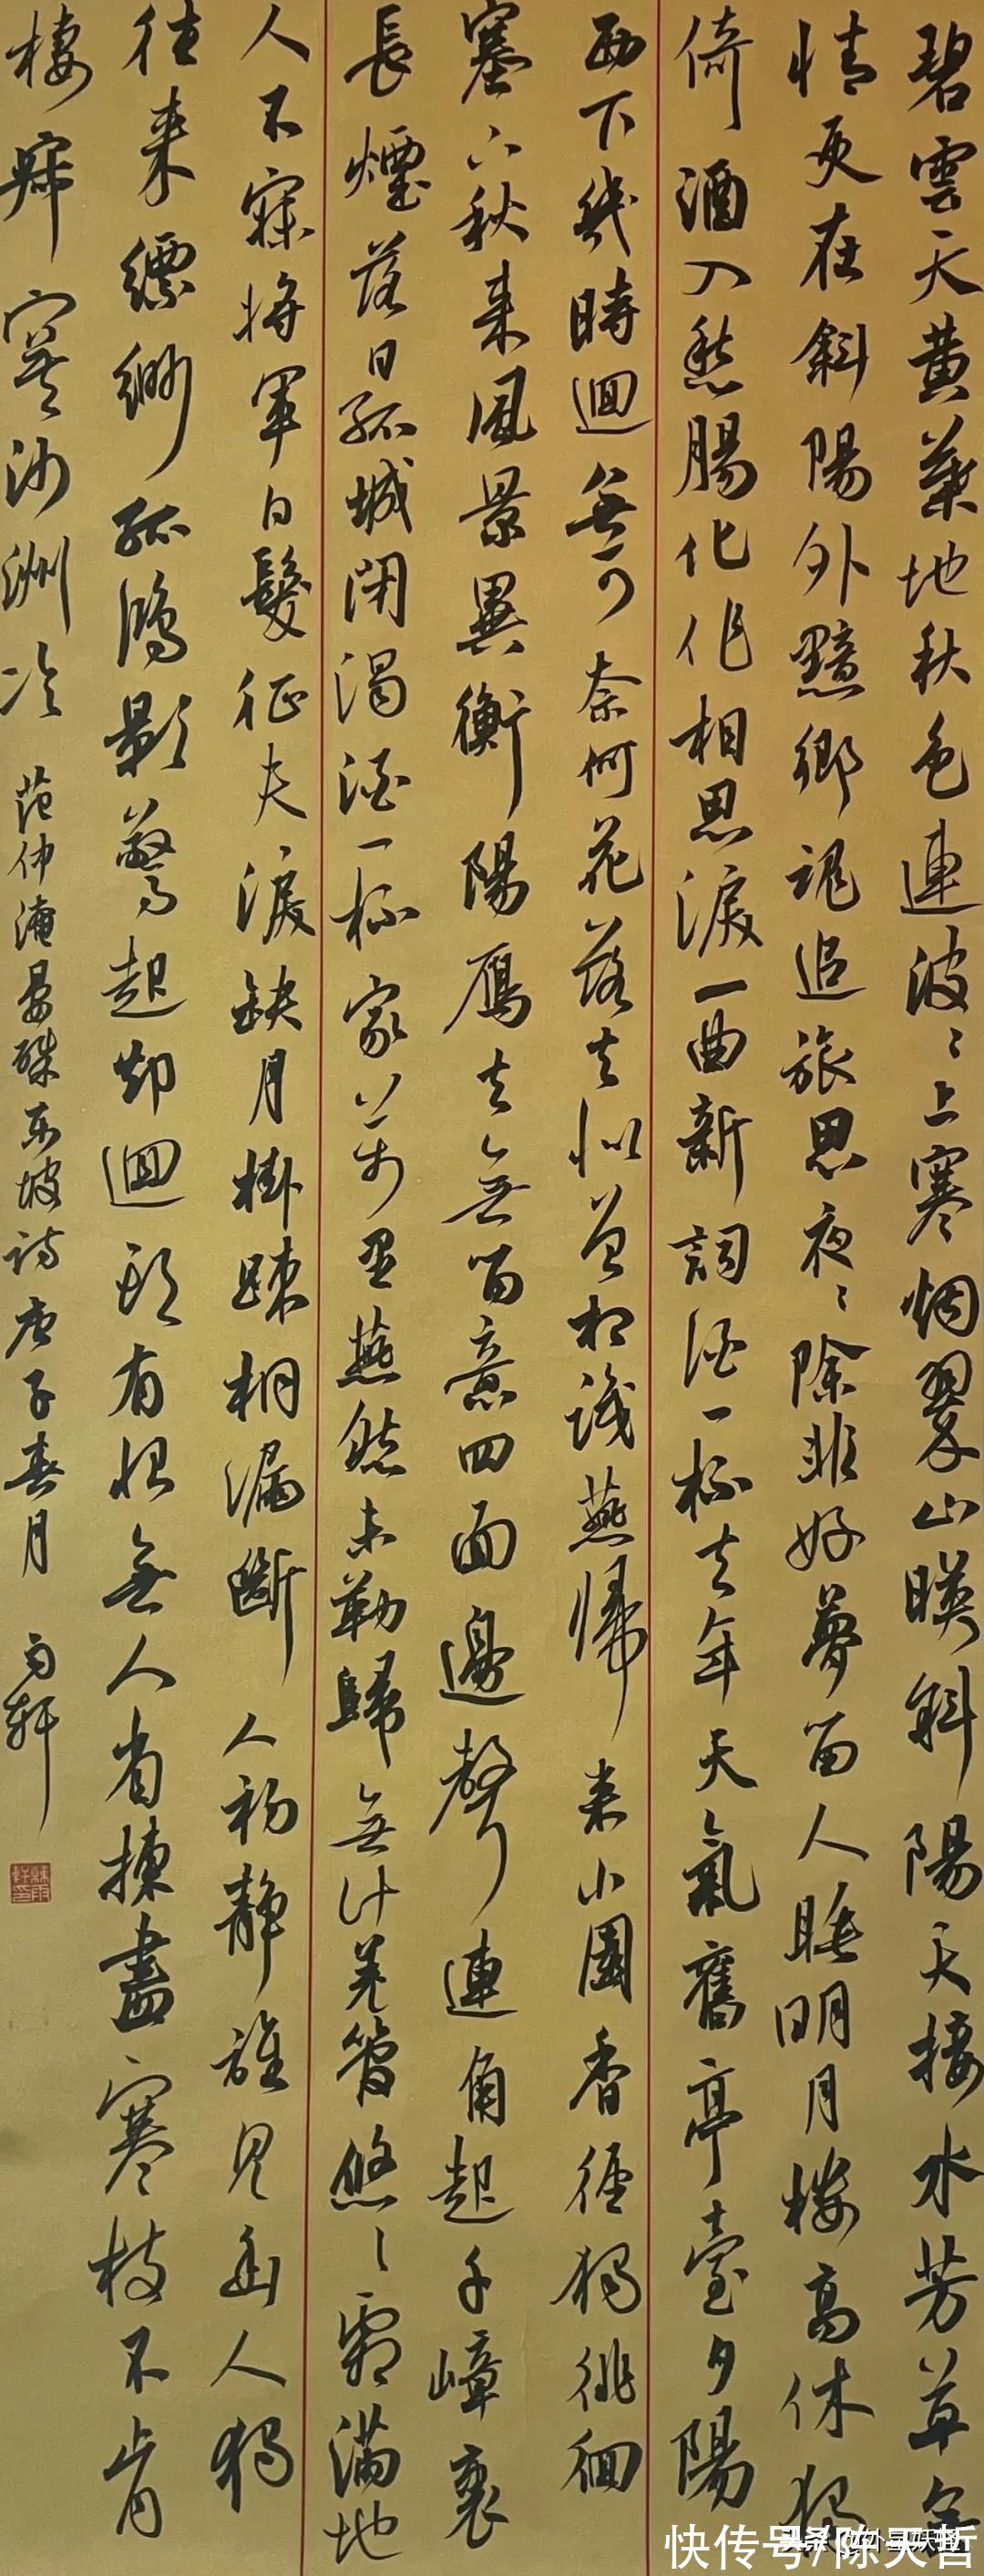 碧雲天黄葉地秋色連波〻上寒烟翠山暎斜陽天接水芳草無
情更在斜陽外黯鄉魂追旅思夜〻除非好夢留人睡明月樓高休獨
倚酒入愁腸化作相思淚一曲新詞酒一杯去年天氣舊亭臺夕陽
西下幾時迴無可奈何花落去似曾相識燕歸来小園香徑獨徘徊
塞下秋来風景異衡陽雁去無留意四面邊聲連角起千嶂裏
長煙落日孤城閉濁酒一杯家萬里燕然未勒歸無計羌管悠〻霜滿地
人不寐將軍白髮征夫淚缺月掛疎桐漏斷人初静誰見幽人獨
往来縹緲孤鴻影驚起却迴頭有恨無人省揀盡寒枝不肯
棲寂寞沙洲冷
范仲淹晏殊东坡詩庚子春月
雨軒
快传号/陈天哲